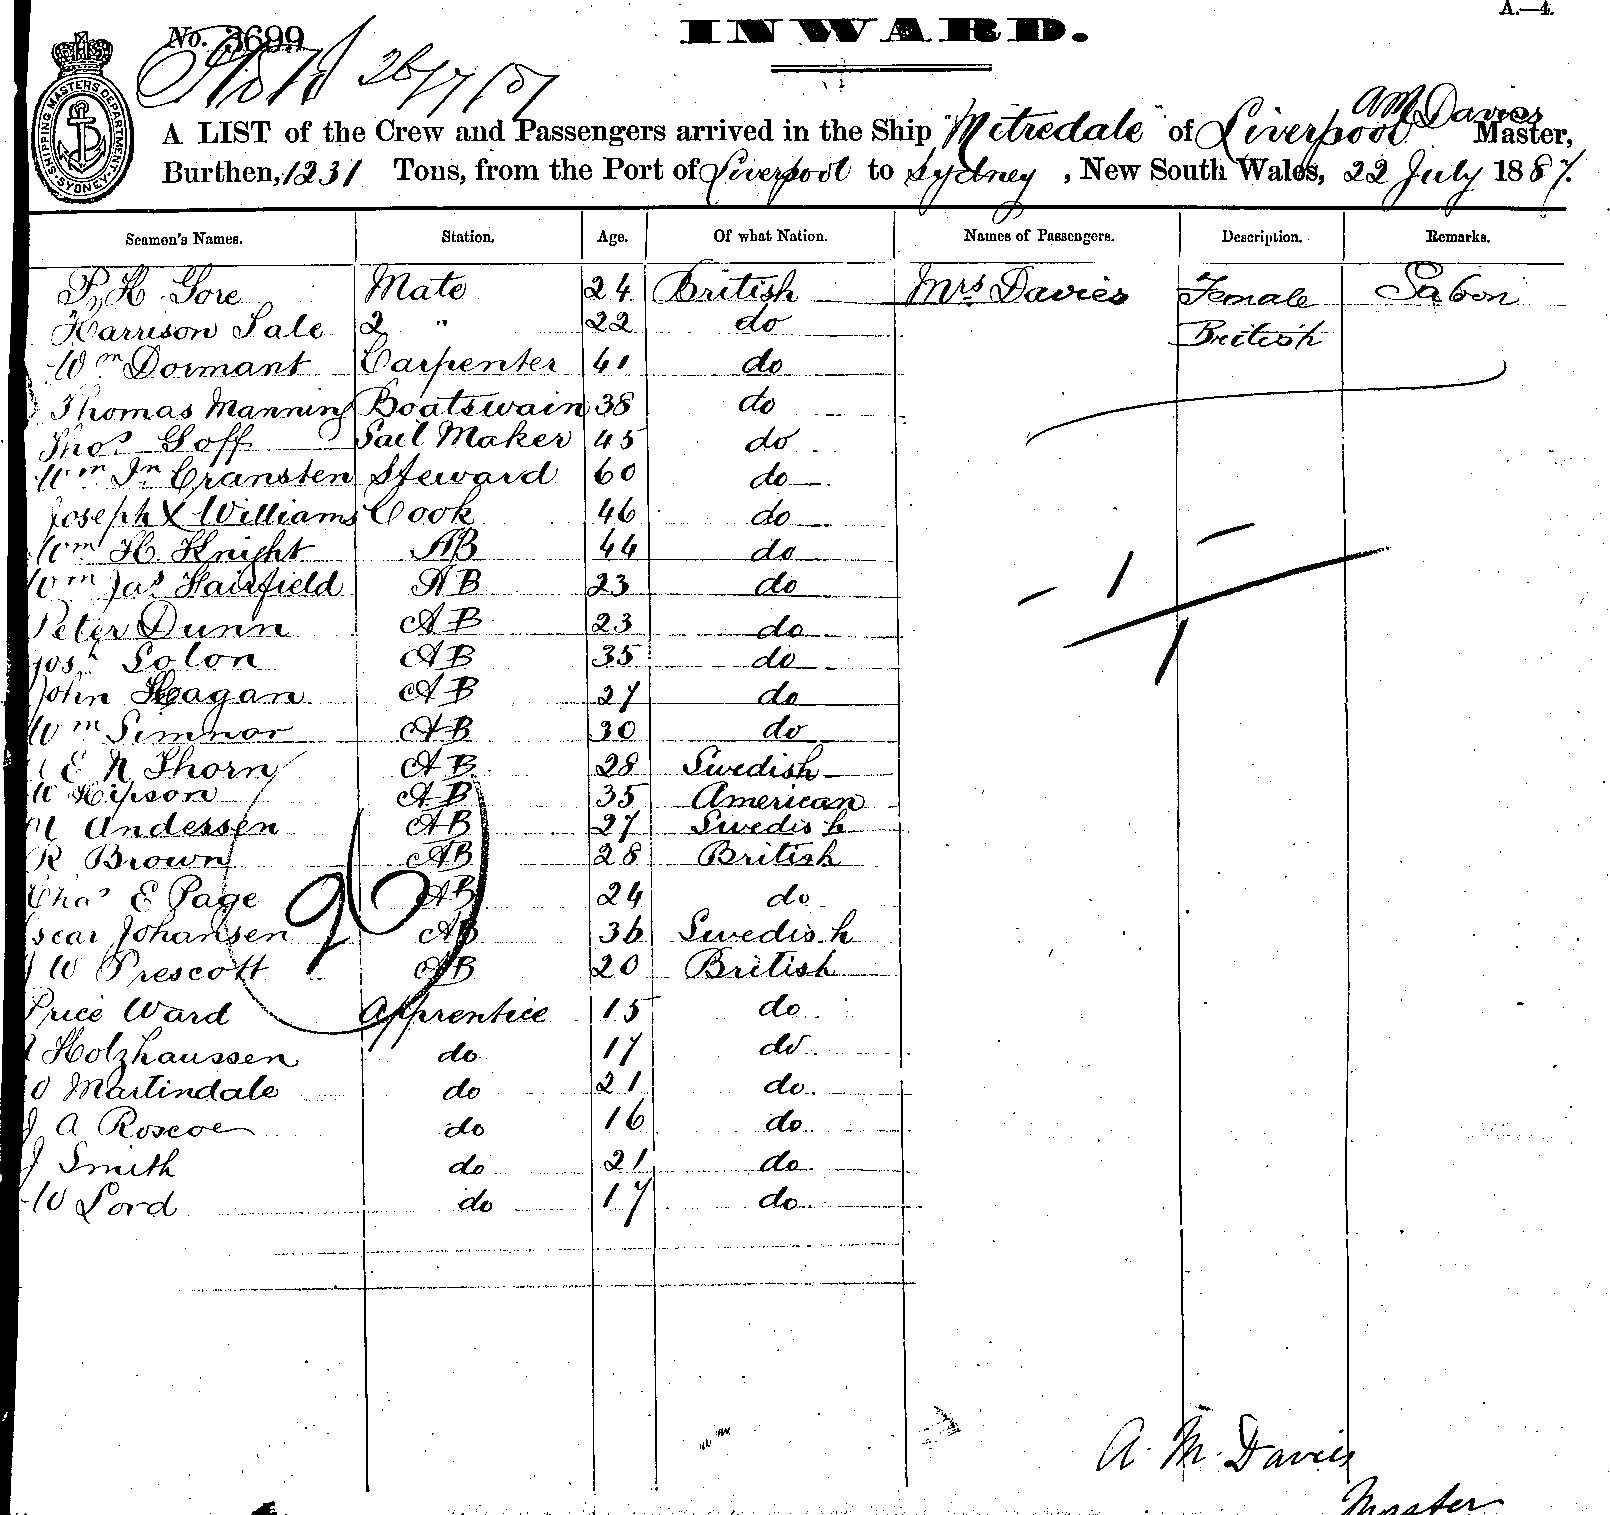 A.—4.
INWARD.
No. 3699
26/7/87
SHIPPING MASTERS DEPARTMENT SYDNEY
A M Davies
A LIST of the Crew and Passengers arrived in the Ship "Mitredale" of Liverpool Master,
Burthen, 1231 Tons, from the Port of Liverpool to Sydney, New South Wales, 22 July 1887.
Seamen's Names. Station. Age. Of what Nation. Names of Passengers. Description. Remarks.
P. H. Gore Mate 24 British Mrs Davies Female Sabon
Harrison Sale 2 " 22 do British
Wm Dormant Carpenter 41 do
Thomas Manning Boatswain 38 do
Thos Goff Sail Maker 45 do
Wm Jn Cransten Steward 60 do
Joseph X Williams Cook 46 do
Wm H. Knight AB 44 do
Wm Jas Hairfield AB 23 do
Peter Dunn AB 23 do
Josh Solon AB 35 do
John Heagan AB 27 do
Wm Simnor AB 30 do
E N Thorn AB 28 Swedish
W Hipson AB 35 American
Andessen AB 27 Swedish
R Brown AB 28 British
Chas E Page AB 24 do
scar Johansen AB 36 Swedish
J W Prescott AB 20 British
Price Ward Apprentice 15 do
Holzhaussen do 17 do
Martindale do 21 do
J A Roscoe do 16 do
J Smith do 21 do
W Lord do 17 do
- 1 -
1
A. M. Davies
Master